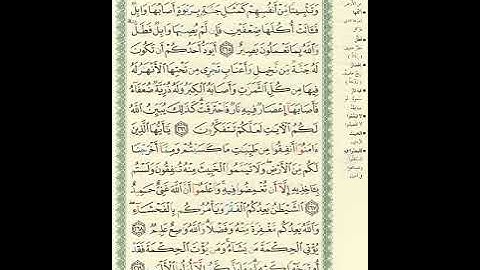 وَتَثْبِيتًا مِّنْ أَنفُسِهِمْ كَمَثَلِ جَنَّةٍ بِرَبْوَةٍ أَصَابَهَا وَابِلٌ
فَـَٔاتَتْ أُكُلَهَا ضِعْفَيْنِ فَإِن لَّمْ يُصِبْهَا وَابِلٌ فَطَلٌّ
وَٱللَّهُ بِمَا تَعْمَلُونَ بَصِيرٌ ٢٦٥ أَيَوَدُّ أَحَدُكُمْ أَن تَكُونَ
لَهُۥ جَنَّةٌ مِّن نَّخِيلٍ وَأَعْنَابٍ تَجْرِى مِن تَحْتِهَا ٱلْأَنْهَٰرُ لَهُۥ
فِيهَا مِن كُلِّ ٱلثَّمَرَٰتِ وَأَصَابَهُ ٱلْكِبَرُ وَلَهُۥ ذُرِّيَّةٌ ضُعَفَآءُ
فَأَصَابَهَآ إِعْصَارٌ فِيهِ نَارٌ فَٱحْتَرَقَتْ كَذَٰلِكَ يُبَيِّنُ ٱللَّهُ
لَكُمُ ٱلْـَٔايَٰتِ لَعَلَّكُمْ تَتَفَكَّرُونَ ٢٦٦ يَٰٓأَيُّهَا ٱلَّذِينَ
ءَامَنُوٓا۟ أَنفِقُوا۟ مِن طَيِّبَٰتِ مَا كَسَبْتُمْ وَمِمَّآ أَخْرَجْنَا
لَكُم مِّنَ ٱلْأَرْضِ وَلَا تَيَمَّمُوا۟ ٱلْخَبِيثَ مِنْهُ تُنفِقُونَ وَلَسْتُم
بِـَٔاخِذِيهِ إِلَّآ أَن تُغْمِضُوا۟ فِيهِ وَٱعْلَمُوٓا۟ أَنَّ ٱللَّهَ غَنِىٌّ حَمِيدٌ
٢٦٧ ٱلشَّيْطَٰنُ يَعِدُكُمُ ٱلْفَقْرَ وَيَأْمُرُكُم بِٱلْفَحْشَآءِ
وَٱللَّهُ يَعِدُكُم مَّغْفِرَةً مِّنْهُ وَفَضْلًا وَٱللَّهُ وَٰسِعٌ عَلِيمٌ ٢٦٨
يُؤْتِى ٱلْحِكْمَةَ مَن يَشَآءُ وَمَن يُؤْتَ ٱلْحِكْمَةَ فَقَدْ